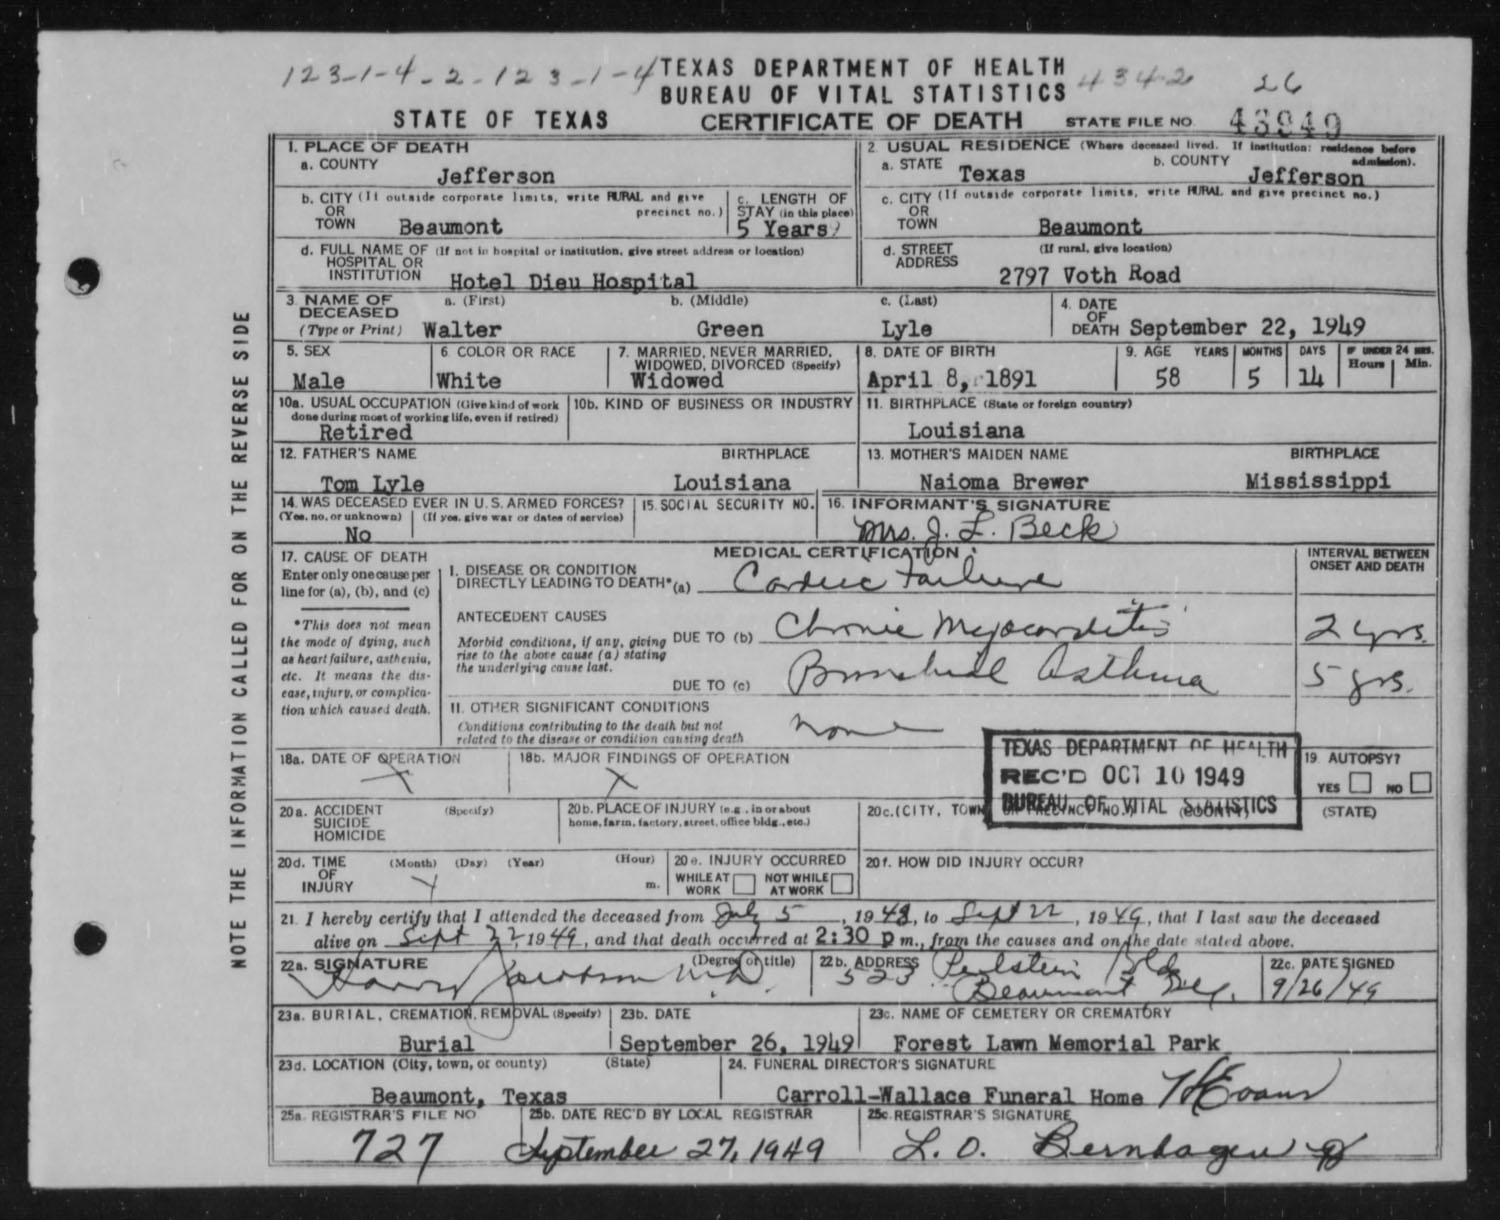 123-1-4-2-123-1-4 TEXAS DEPARTMENT OF HEALTH 4342 26
BUREAU OF VITAL STATISTICS
STATE OF TEXAS CERTIFICATE OF DEATH STATE FILE NO. 43949
1. PLACE OF DEATH
a. COUNTY Jefferson
2. USUAL RESIDENCE (Where deceased lived. If institution: residence before admission).
a. STATE Texas b. COUNTY Jefferson
b. CITY (If outside corporate limits, write RURAL and give precinct no.) OR TOWN Beaumont
c. LENGTH OF STAY (in this place) 5 Years
c. CITY (If outside corporate limits, write RURAL and give precinct no.) OR TOWN Beaumont
d. FULL NAME OF (If not in hospital or institution, give street address or location) HOSPITAL OR INSTITUTION Hotel Dieu Hospital
d. STREET ADDRESS (If rural, give location) 2797 Voth Road
3. NAME OF DECEASED (Type or Print) a. (First) Walter b. (Middle) Green c. (Last) Lyle
4. DATE OF DEATH September 22, 1949
5. SEX Male
6. COLOR OR RACE White
7. MARRIED, NEVER MARRIED, WIDOWED, DIVORCED (Specify) Widowed
8. DATE OF BIRTH April 8, 1891
9. AGE YEARS 58 MONTHS 5 DAYS 14 IF UNDER 24 HRS. Hours Min.
10a. USUAL OCCUPATION (Give kind of work done during most of working life, even if retired) Retired
10b. KIND OF BUSINESS OR INDUSTRY
11. BIRTHPLACE (State or foreign country) Louisiana
12. FATHER'S NAME Tom Lyle BIRTHPLACE Louisiana
13. MOTHER'S MAIDEN NAME Naioma Brewer BIRTHPLACE Mississippi
14. WAS DECEASED EVER IN U.S. ARMED FORCES? (Yes, no, or unknown) (If yes, give war or dates of service) No
15. SOCIAL SECURITY NO.
16. INFORMANT'S SIGNATURE Mrs. J. L. Beck
17. CAUSE OF DEATH
Enter only one cause per line for (a), (b), and (c)
*This does not mean the mode of dying, such as heart failure, asthenia, etc. It means the disease, injury, or complication which caused death.
MEDICAL CERTIFICATION
INTERVAL BETWEEN ONSET AND DEATH
I. DISEASE OR CONDITION DIRECTLY LEADING TO DEATH* (a) Cardiac Failure
ANTECEDENT CAUSES
Morbid conditions, if any, giving rise to the above cause (a) stating the underlying cause last.
DUE TO (b) Chronic Myocarditis 2 yrs.
DUE TO (c) Bronchial Asthma 5 yrs.
II. OTHER SIGNIFICANT CONDITIONS
Conditions contributing to the death but not related to the disease or condition causing death none
18a. DATE OF OPERATION X
18b. MAJOR FINDINGS OF OPERATION X
TEXAS DEPARTMENT OF HEALTH
REC'D OCT 10 1949
BUREAU OF VITAL STATISTICS
19. AUTOPSY?
YES NO
20a. ACCIDENT SUICIDE HOMICIDE (Specify)
20b. PLACE OF INJURY (e.g., in or about home, farm, factory, street, office bldg., etc.)
20c. (CITY, TOWN OR PRECINCT NO.) (COUNTY) (STATE)
20d. TIME OF INJURY (Month) (Day) (Year) (Hour) m.
20e. INJURY OCCURRED
WHILE AT WORK NOT WHILE AT WORK
20f. HOW DID INJURY OCCUR?
21. I hereby certify that I attended the deceased from July 5, 1948, to Sept 22, 1949, that I last saw the deceased
alive on Sept 22, 1949, and that death occurred at 2:30 p m., from the causes and on the date stated above.
22a. SIGNATURE (Degree or title) Harry Jacobson M.D.
22b. ADDRESS 523 Perlstein Bldg Beaumont, Tex.
22c. DATE SIGNED 9/26/49
23a. BURIAL, CREMATION, REMOVAL (Specify) Burial
23b. DATE September 26, 1949
23c. NAME OF CEMETERY OR CREMATORY Forest Lawn Memorial Park
23d. LOCATION (City, town, or county) (State) Beaumont, Texas
24. FUNERAL DIRECTOR'S SIGNATURE Carroll-Wallace Funeral Home Evans
25a. REGISTRAR'S FILE NO 727
25b. DATE REC'D BY LOCAL REGISTRAR September 27, 1949
25c. REGISTRAR'S SIGNATURE L. O. Bernhagen
NOTE THE INFORMATION CALLED FOR ON THE REVERSE SIDE